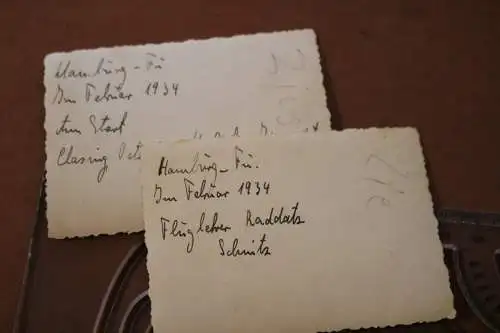 Hamburg - Fu.
Im Februar 1934
zum Start
Clasing
Hamburg - Fu.
Im Februar 1934
Fluglehrer Raddatz
Schmitz